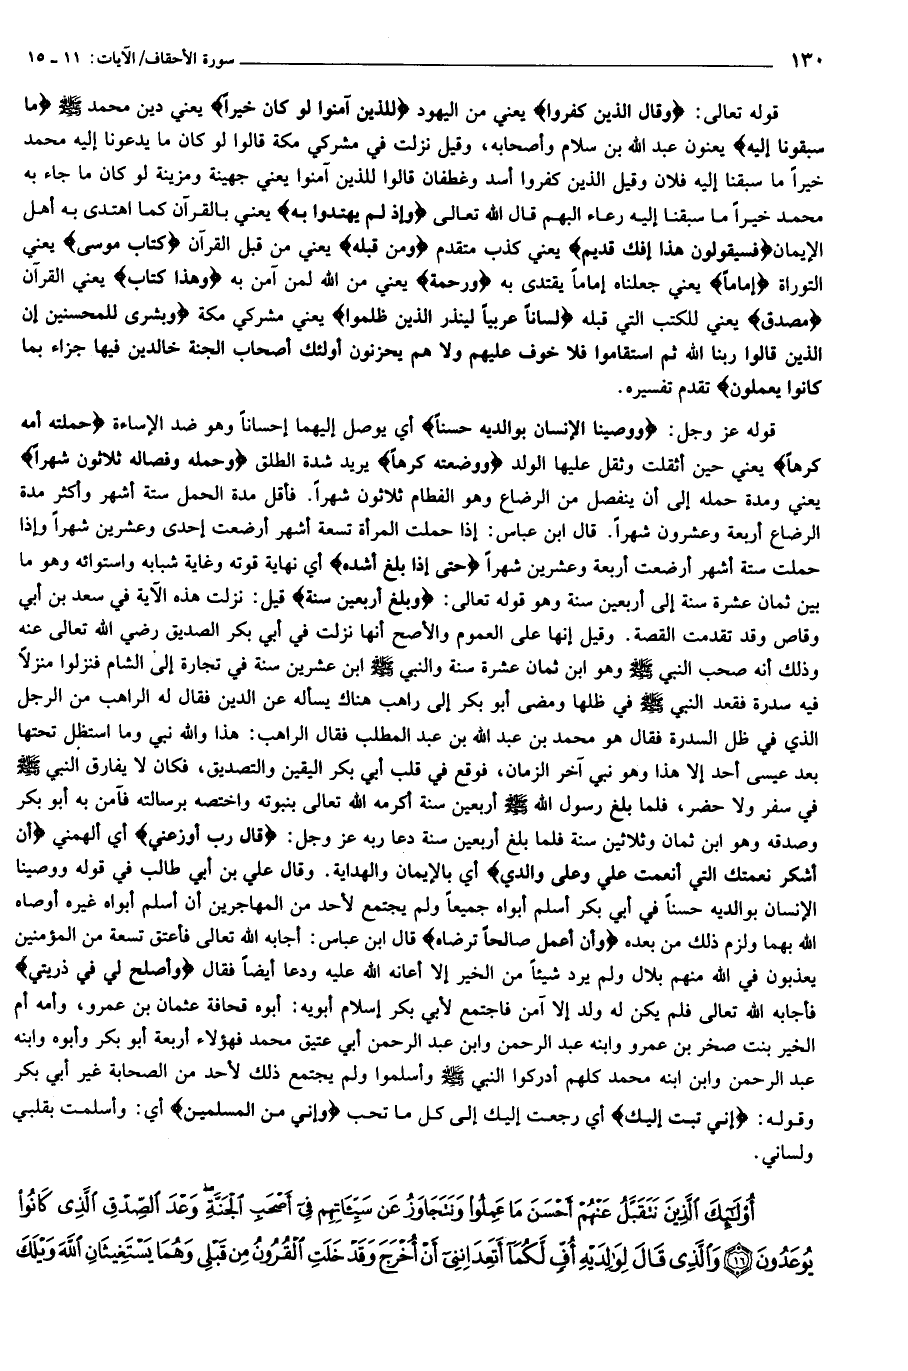 ١٣٠ سورة الأحقاف/ الآيات: ١١ - ١٥
قوله تعالى: ﴿وقال الذين كفروا﴾ يعني من اليهود ﴿للذين آمنوا لو كان خيراً﴾ يعني دين محمد ﷺ ﴿ما
سبقونا إليه﴾ يعنون عبد الله بن سلام وأصحابه، وقيل نزلت في مشركي مكة قالوا لو كان ما يدعونا إليه محمد
خيراً ما سبقنا إليه فلان وقيل الذين كفروا أسد وغطفان قالوا للذين آمنوا يعني جهينة ومزينة لو كان ما جاء به
محمد خيراً ما سبقنا إليه رعاء البهم قال الله تعالى ﴿وإذ لم يهتدوا به﴾ يعني بالقرآن كما اهتدى به أهل
الإيمان﴿فسيقولون هذا إفك قديم﴾ يعني كذب متقدم ﴿ومن قبله﴾ يعني من قبل القرآن ﴿كتاب موسى﴾ يعني
التوراة ﴿إماماً﴾ يعني جعلناه إماماً يقتدى به ﴿ورحمة﴾ يعني من الله لمن آمن به ﴿وهذا كتاب﴾ يعني القرآن
﴿مصدق﴾ يعني للكتب التي قبله ﴿لساناً عربياً لينذر الذين ظلموا﴾ يعني مشركي مكة ﴿وبشرى للمحسنين إن
الذين قالوا ربنا الله ثم استقاموا فلا خوف عليهم ولا هم يحزنون أولئك أصحاب الجنة خالدين فيها جزاء بما
كانوا يعملون﴾ تقدم تفسيره.
قوله عز وجل: ﴿ووصينا الإنسان بوالديه حسناً﴾ أي يوصل إليهما إحساناً وهو ضد الإساءة ﴿حملته أمه
كرهاً﴾ يعني حين أثقلت وثقل عليها الولد ﴿ووضعته كرهاً﴾ يريد شدة الطلق ﴿وحمله وفصاله ثلاثون شهراً﴾
يعني ومدة حمله إلى أن ينفصل من الرضاع وهو الفطام ثلاثون شهراً. فأقل مدة الحمل ستة أشهر وأكثر مدة
الرضاع أربعة وعشرون شهراً. قال ابن عباس: إذا حملت المرأة تسعة أشهر أرضعت إحدى وعشرين شهراً وإذا
حملت ستة أشهر أرضعت أربعة وعشرين شهراً ﴿حتى إذا بلغ أشده﴾ أي نهاية قوته وغاية شبابه واستوائه وهو ما
بين ثمان عشرة سنة إلى أربعين سنة وهو قوله تعالى: ﴿وبلغ أربعين سنة﴾ قيل: نزلت هذه الآية في سعد بن أبي
وقاص وقد تقدمت القصة. وقيل إنها على العموم والأصح أنها نزلت في أبي بكر الصديق رضي الله تعالى عنه
وذلك أنه صحب النبي ﷺ وهو ابن ثمان عشرة سنة والنبي ﷺ ابن عشرين سنة في تجارة إلى الشام فنزلوا منزلاً
فيه سدرة فقعد النبي ﷺ في ظلها ومضى أبو بكر إلى راهب هناك يسأله عن الدين فقال له الراهب من الرجل
الذي في ظل السدرة فقال هو محمد بن عبد الله بن عبد المطلب فقال الراهب: هذا والله نبي وما استظل تحتها
بعد عيسى أحد إلا هذا وهو نبي آخر الزمان، فوقع في قلب أبي بكر اليقين والتصديق، فكان لا يفارق النبي ﷺ
في سفر ولا حضر، فلما بلغ رسول الله ﷺ أربعين سنة أكرمه الله تعالى بنبوته واختصه برسالته فآمن به أبو بكر
وصدقه وهو ابن ثمان وثلاثين سنة فلما بلغ أربعين سنة دعا ربه عز وجل: ﴿قال رب أوزعني﴾ أي ألهمني ﴿أن
أشكر نعمتك التي أنعمت علي وعلى والدي﴾ أي بالإيمان والهداية. وقال علي بن أبي طالب في قوله ووصينا
الإنسان بوالديه حسناً في أبي بكر أسلم أبواه جميعاً ولم يجتمع لأحد من المهاجرين أن أسلم أبواه غيره أوصاه
الله بهما ولزم ذلك من بعده ﴿وأن أعمل صالحاً ترضاه﴾ قال ابن عباس: أجابه الله تعالى فأعتق تسعة من المؤمنين
يعذبون في الله منهم بلال ولم يرد شيئاً من الخير إلا أعانه الله عليه ودعا أيضاً فقال ﴿وأصلح لي في ذريتي﴾
فأجابه الله تعالى فلم يكن له ولد إلا آمن فاجتمع لأبي بكر إسلام أبويه: أبوه قحافة عثمان بن عمرو، وأمه أم
الخير بنت صخر بن عمرو وابنه عبد الرحمن وابن عبد الرحمن أبي عتيق محمد فهؤلاء أربعة أبو بكر وأبوه وابنه
عبد الرحمن وابن ابنه محمد كلهم أدركوا النبي ﷺ وأسلموا ولم يجتمع ذلك لأحد من الصحابة غير أبي بكر
وقوله: ﴿إني تبت إليك﴾ أي رجعت إليك إلى كل ما تحب ﴿وإني من المسلمين﴾ أي: وأسلمت بقلبي
ولساني.
أُوْلَٰٓئِكَ ٱلَّذِينَ نَتَقَبَّلُ عَنْهُمْ أَحْسَنَ مَا عَمِلُوا۟ وَنَتَجَاوَزُ عَن سَيِّـَٔاتِهِمْ فِىٓ أَصْحَٰبِ ٱلْجَنَّةِ ۖ وَعْدَ ٱلصِّدْقِ ٱلَّذِى كَانُوا۟
يُوعَدُونَ ﴿١٦﴾ وَٱلَّذِى قَالَ لِوَٰلِدَيْهِ أُفٍّ لَّكُمَآ أَتَعِدَانِنِىٓ أَنْ أُخْرَجَ وَقَدْ خَلَتِ ٱلْقُرُونُ مِن قَبْلِى وَهُمَا يَسْتَغِيثَانِ ٱللَّهَ وَيْلَكَ